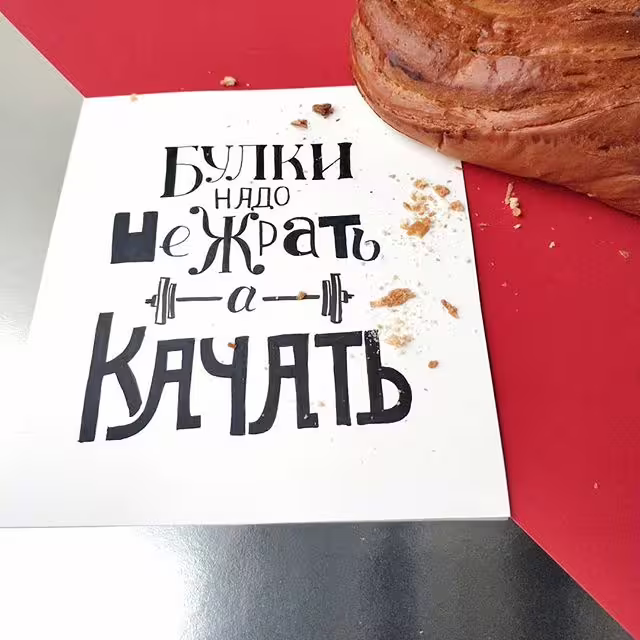 БУЛКИ
НАДО
Не Жрать
а
КАЧАТЬ